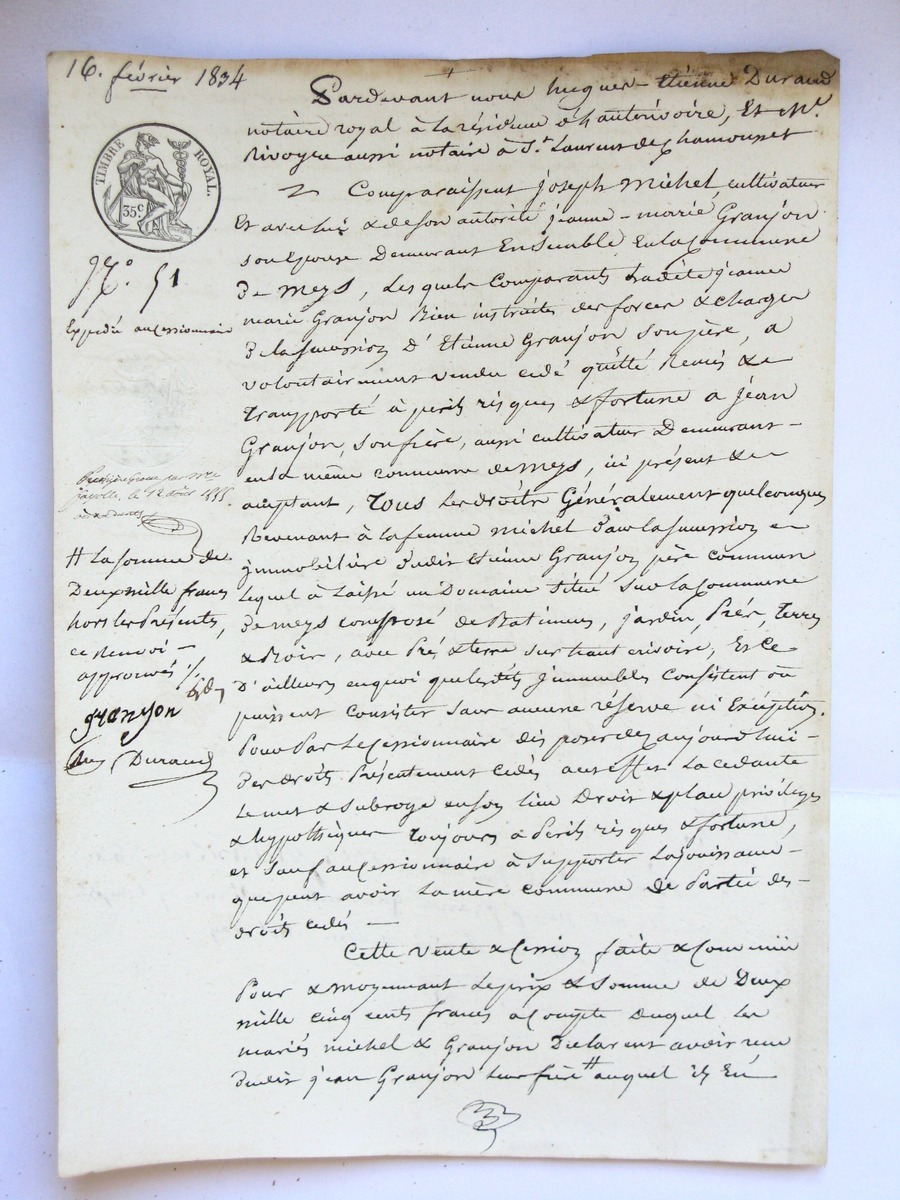 16. février 1834
TIMBRE ROYAL.
35c
N.° 51
Expedié au cessionnaire
Pardevant nous hugues-étienne Durand
notaire royal à la résidence d'hauterivoire, Et Me.
Rivoyre aussi notaire à St. Laurent de Chamousset
Comparaissent joseph Michel cultivateur
Et avec lui & de son autorité jeanne-marie Granjon
son Epouse Demeurant Ensemble En la Commune
De meys, Lesquels Comparants ladite jeanne
marie Granjon Bien instruite des forces & charges
De la succession D'Etienne Granjon son père, a
volontairement vendu cédé quitté Remis &
Transporté à périls risques & fortune a jean
Granjon, son frère, aussi cultivateur Demeurant
en la même commune de meys, ici présent &
acceptant, Tous les droits Généralement quelconques
Revenant à la femme michel Dans la succession
immobilière Dudit Etienne Granjon père commun
Lequel à Laissé un Domaine Situé sur la Commune
De meys composé de Batimens, jardin, Prés, Terres
& Bois, avec Prés & terre sur haut erivoire, Et Ce
D'ailleurs en quoi que lesdits immeubles Consistent ou
puissent Consister sans aucune réserve ni Exception.
Pour Par Le Cessionnaire disposer dès aujourd'hui
Des droits Présentement cedés a cet effet La cédante
Le met & subroge en son lieu Droit & place privilèges
& hypothèques Toujours a Périls risques & fortune,
et sauf au cessionnaire à supporter La jouissance
que peut avoir La mère commune De Partie des
droits cedés
Cette vente & Cession faite & Convenue
Pour & moyennant Le prix & Somme de Deux
mille cinq cents francs a Compte Duquel Les
mariés michel & Granjon Declarent avoir reçu
Dudit jean Granjon Leur frère # auquel ils En
le 12 août
# La somme de
Deux mille francs
hors les Présentes,
ce Renvoi
approuvé ./.
granjon
Durand